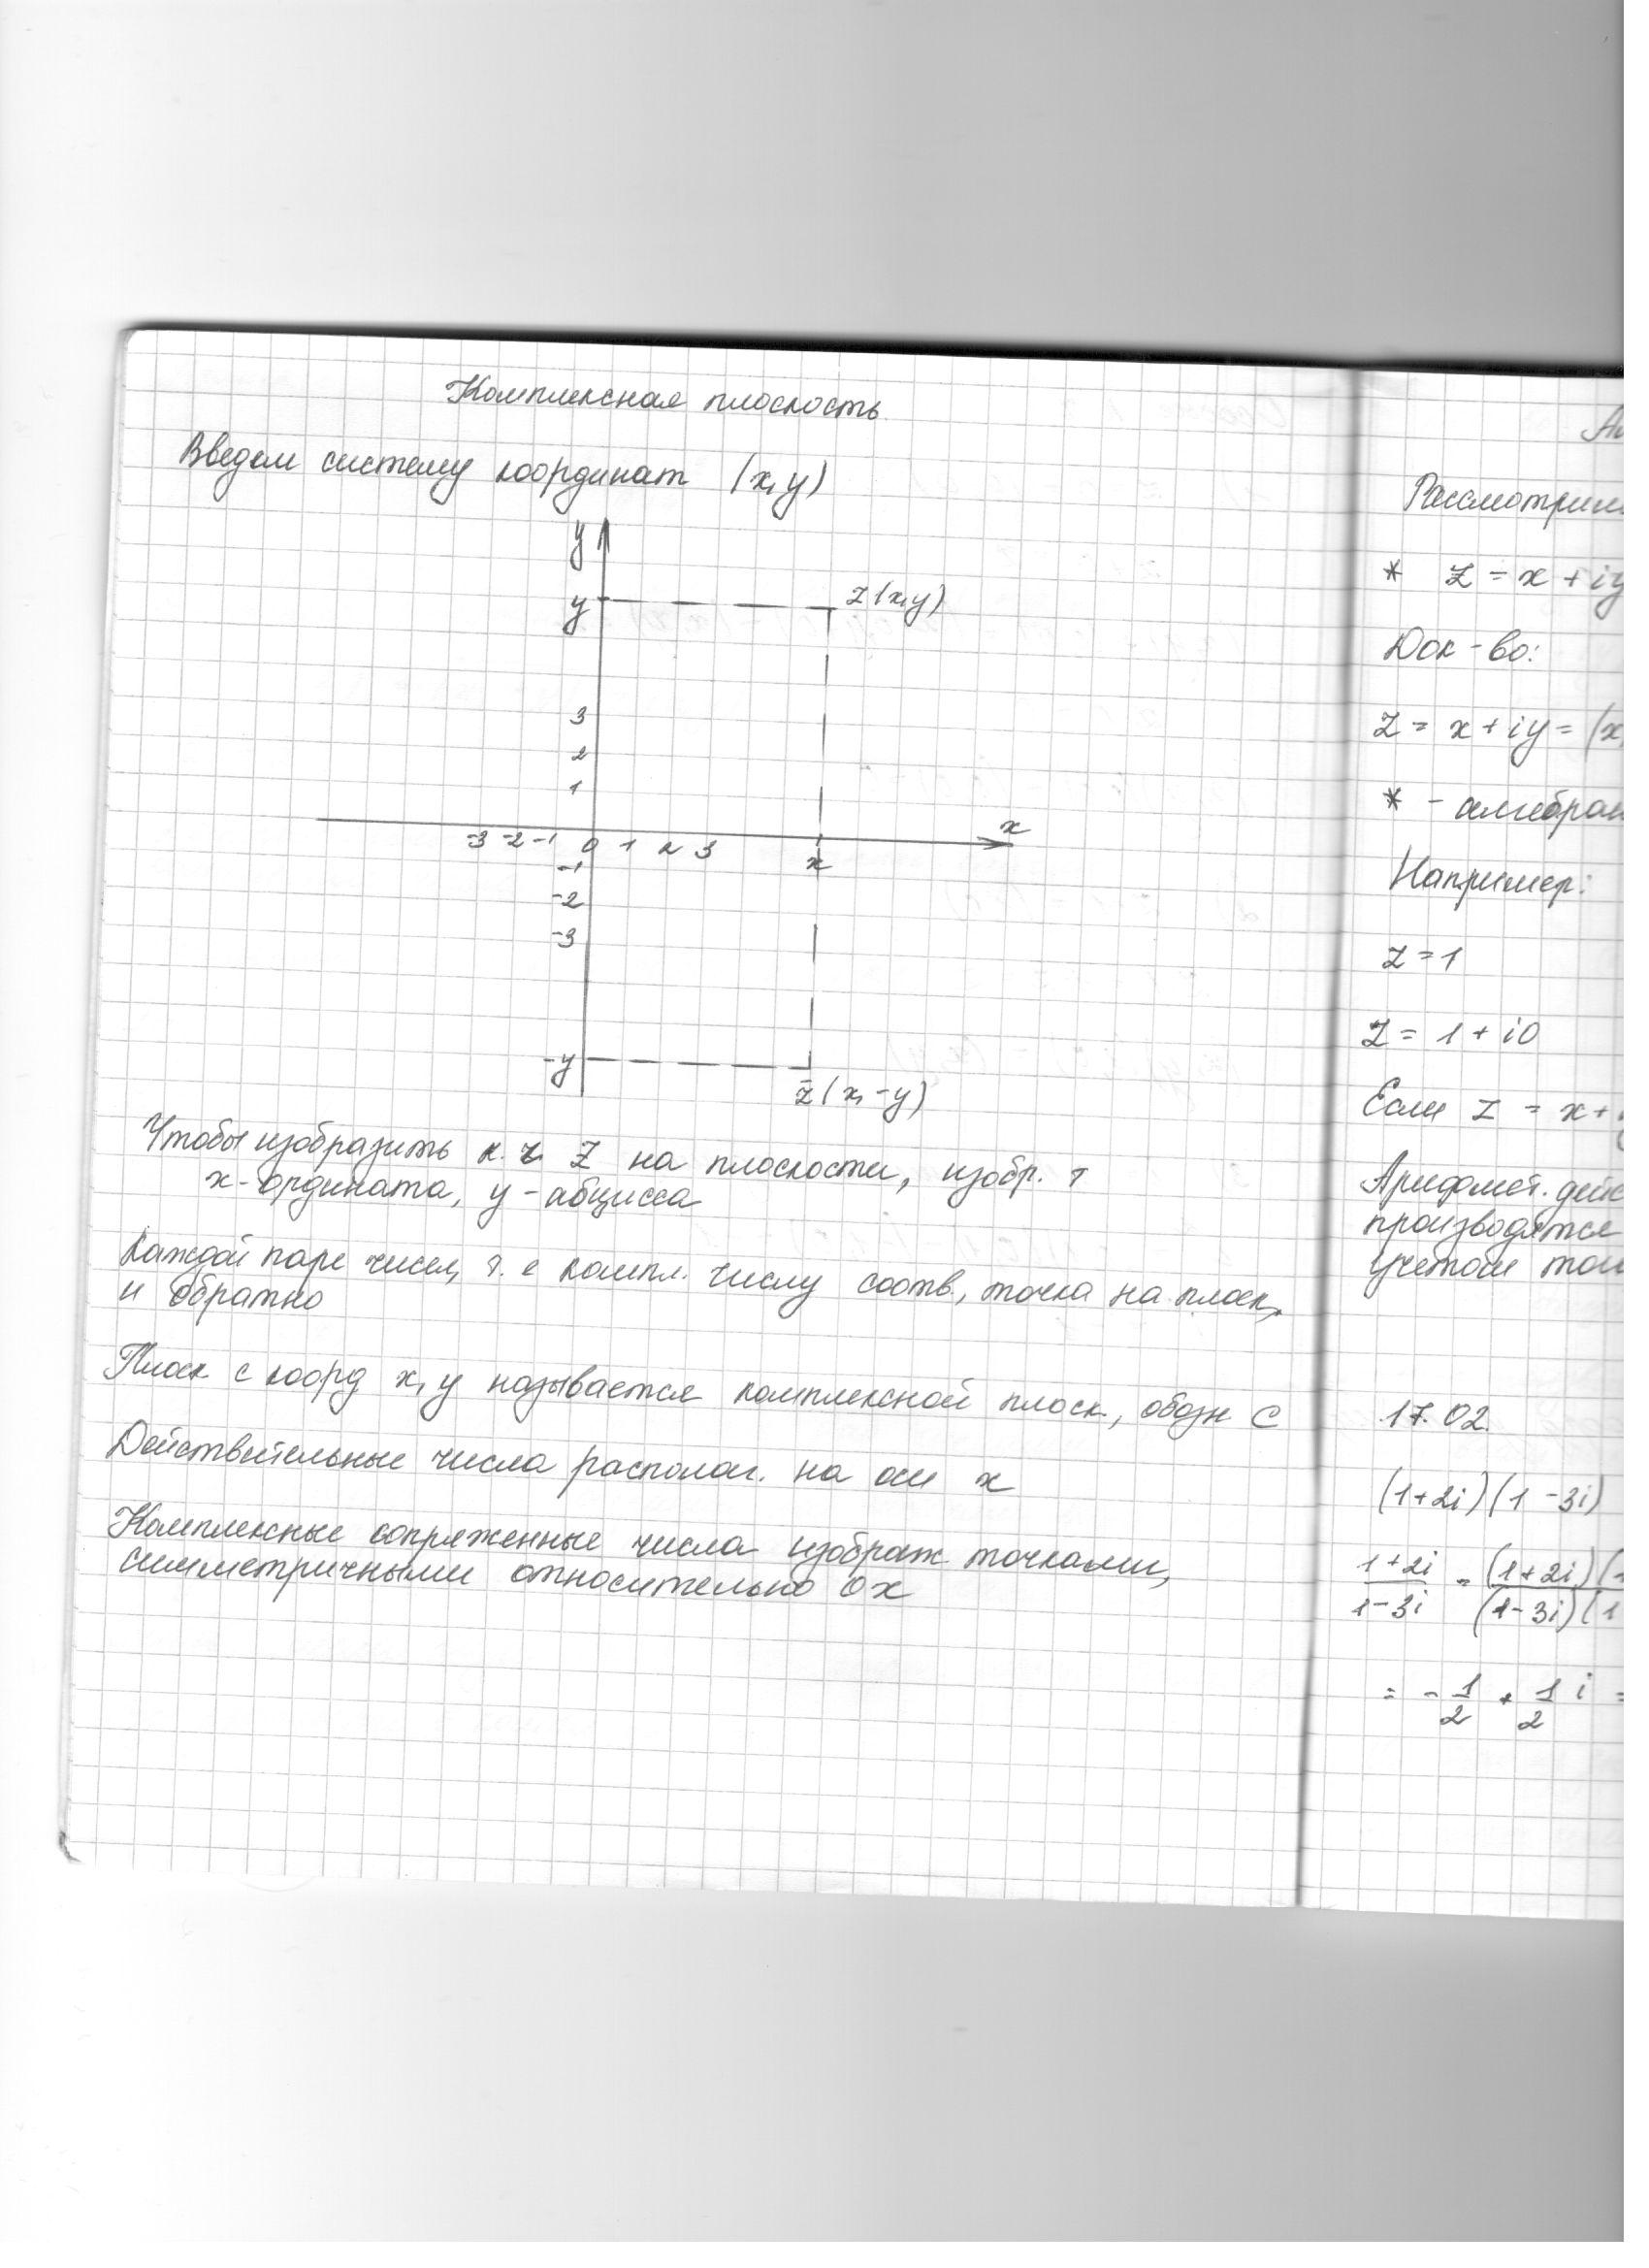 Комплексная плоскость
Введем систему координат (x, y)
y
y
z(x,y)
3
2
1
x
-3 -2 -1 0 1 2 3
x
-1
-2
-3
-y
z̄(x, -y)
Чтобы изобразить к. ч. Z на плоскости, изобр. т
x-ордината, y-абцисса
Каждой паре чисел, т. е компл. числу соотв., точка на плоск,
и обратно
Плоск с коорд x, y называется комплексной плоск., обозн C
Действительные числа располаг. на оси x
Комплексные сопряженные числа изображ точками,
симметричными относительно Ox
Рассмотрим
* Z = x + iy
Док-во:
Z = x + iy = (x,
* - алгебраи
Например:
Z = 1
Z = 1 + i0
Если Z = x +
Арифмет. дейс
производятся
учетом том
17.02.
(1+2i)(1-3i)
1+2i/1-3i = (1+2i)(1/(1-3i)(1
= -1/2 + 1/2 i =